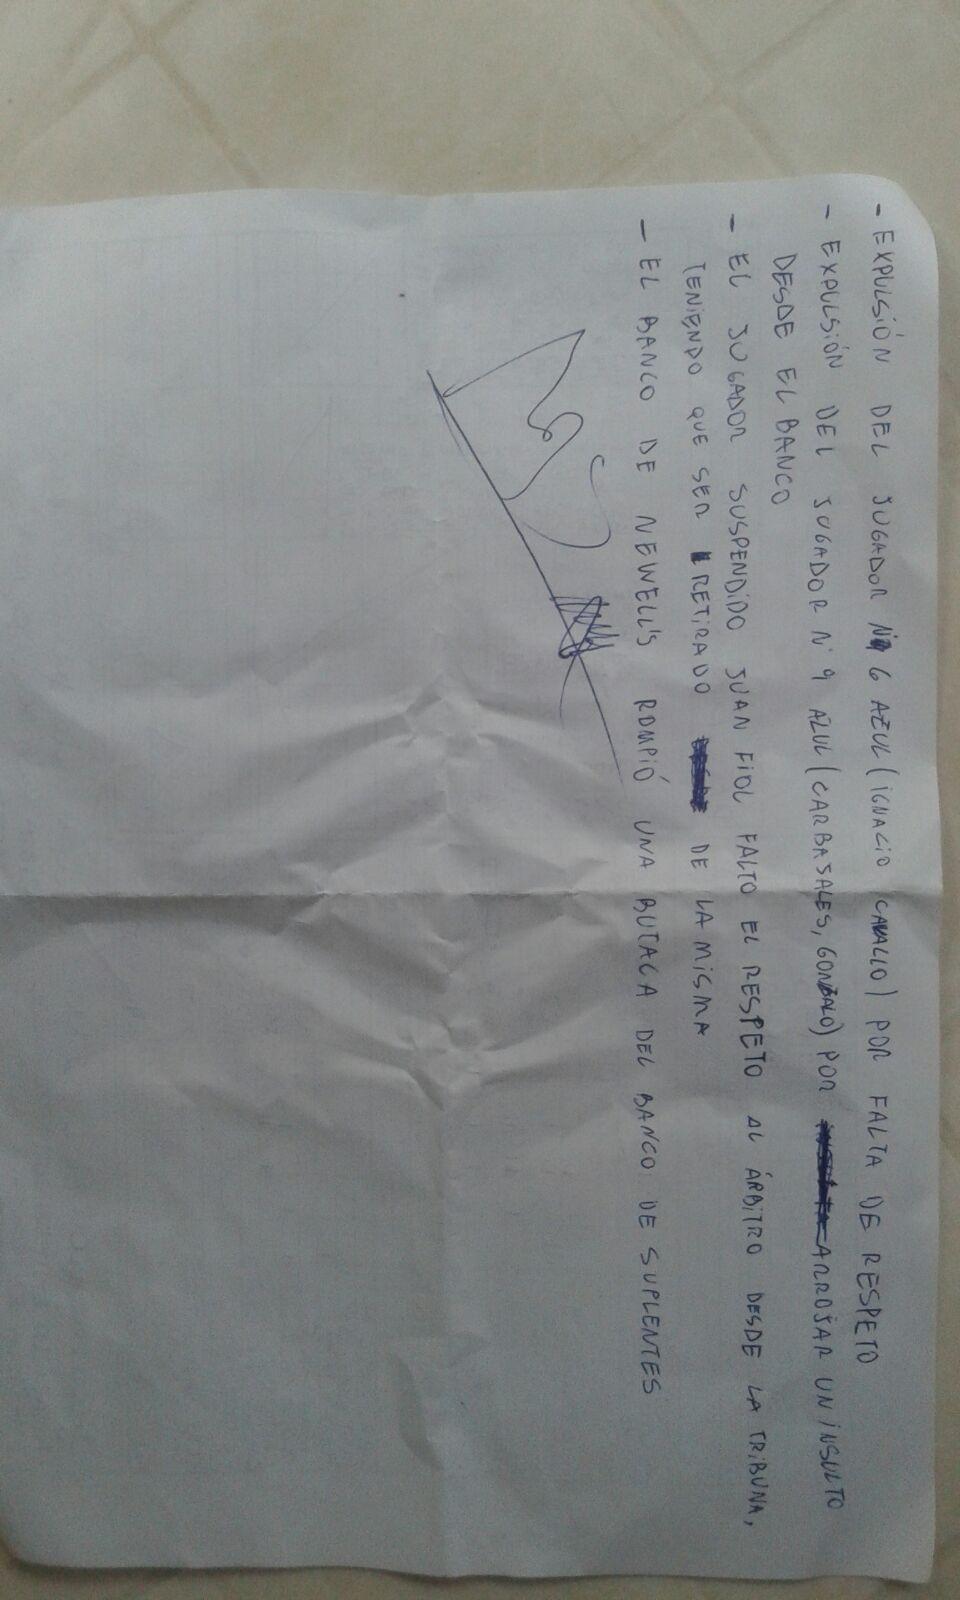 - EXPULSIÓN DEL JUGADOR N 6 AZUL (IGNACIO CAVALLO) POR FALTA DE RESPETO
- EXPULSIÓN DEL JUGADOR N° 9 AZUL (CARBASALES, GONZALO) POR ARROJAR UN INSULTO
DESDE EL BANCO
- EL JUGADOR SUSPENDIDO JUAN FIOL FALTO EL RESPETO AL ÁRBITRO DESDE LA TRIBUNA,
TENIENDO QUE SER RETIRADO DE LA MISMA
- EL BANCO DE NEWELL'S ROMPIÓ UNA BUTACA DEL BANCO DE SUPLENTES